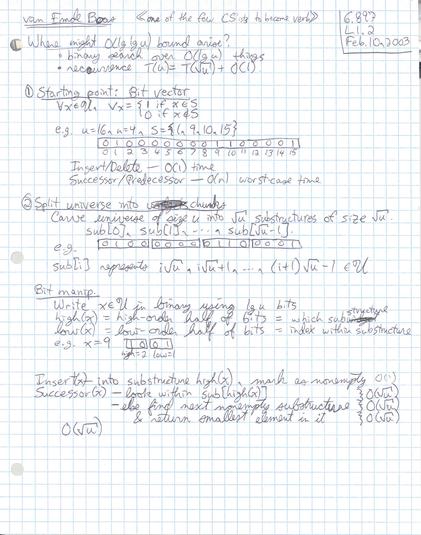 van Emde Boas <<one of the few CSists to become verb>>
6.897
L1.2
Feb. 10, 2003
Where might O(lg lg u) bound arise?
• binary search over O(lg u) things
• recurrence T(u) = T(√u) + O(1)
① Starting point: Bit vector
∀x∈U, Vx = {1 if x∈S
0 if x∉S
e.g. u=16, n=4, S={1,9,10,15}
0 1 0 0 0 0 0 0 0 1 1 0 0 0 0 1
0 1 2 3 4 5 6 7 8 9 10 11 12 13 14 15
Insert/Delete — O(1) time
Successor/Predecessor — O(n) worst-case time
② Split universe into chunks
Carve universe of size u into √u substructures of size √u.
sub[0], sub[1], ..., sub[√u-1].
e.g. 0 1 0 0 0 0 0 0 0 1 1 0 0 0 0 1
sub[i] represents i√u, i√u+1, ..., (i+1)√u-1 ∈U
Bit manip.
Write x∈U in binary using lg u bits
high(x) = high-order half of bits = which substructure
low(x) = low-order half of bits = index within substructure
e.g. x=9 1 0 0 1
high=2 low=1
Insert(x) - into substructure high(x), mark as nonempty O(1)
Successor(x) - look within sub[high(x)] } O(√u)
- else find next nonempty substructure } O(√u)
& return smallest element in it } O(√u)
O(√u)